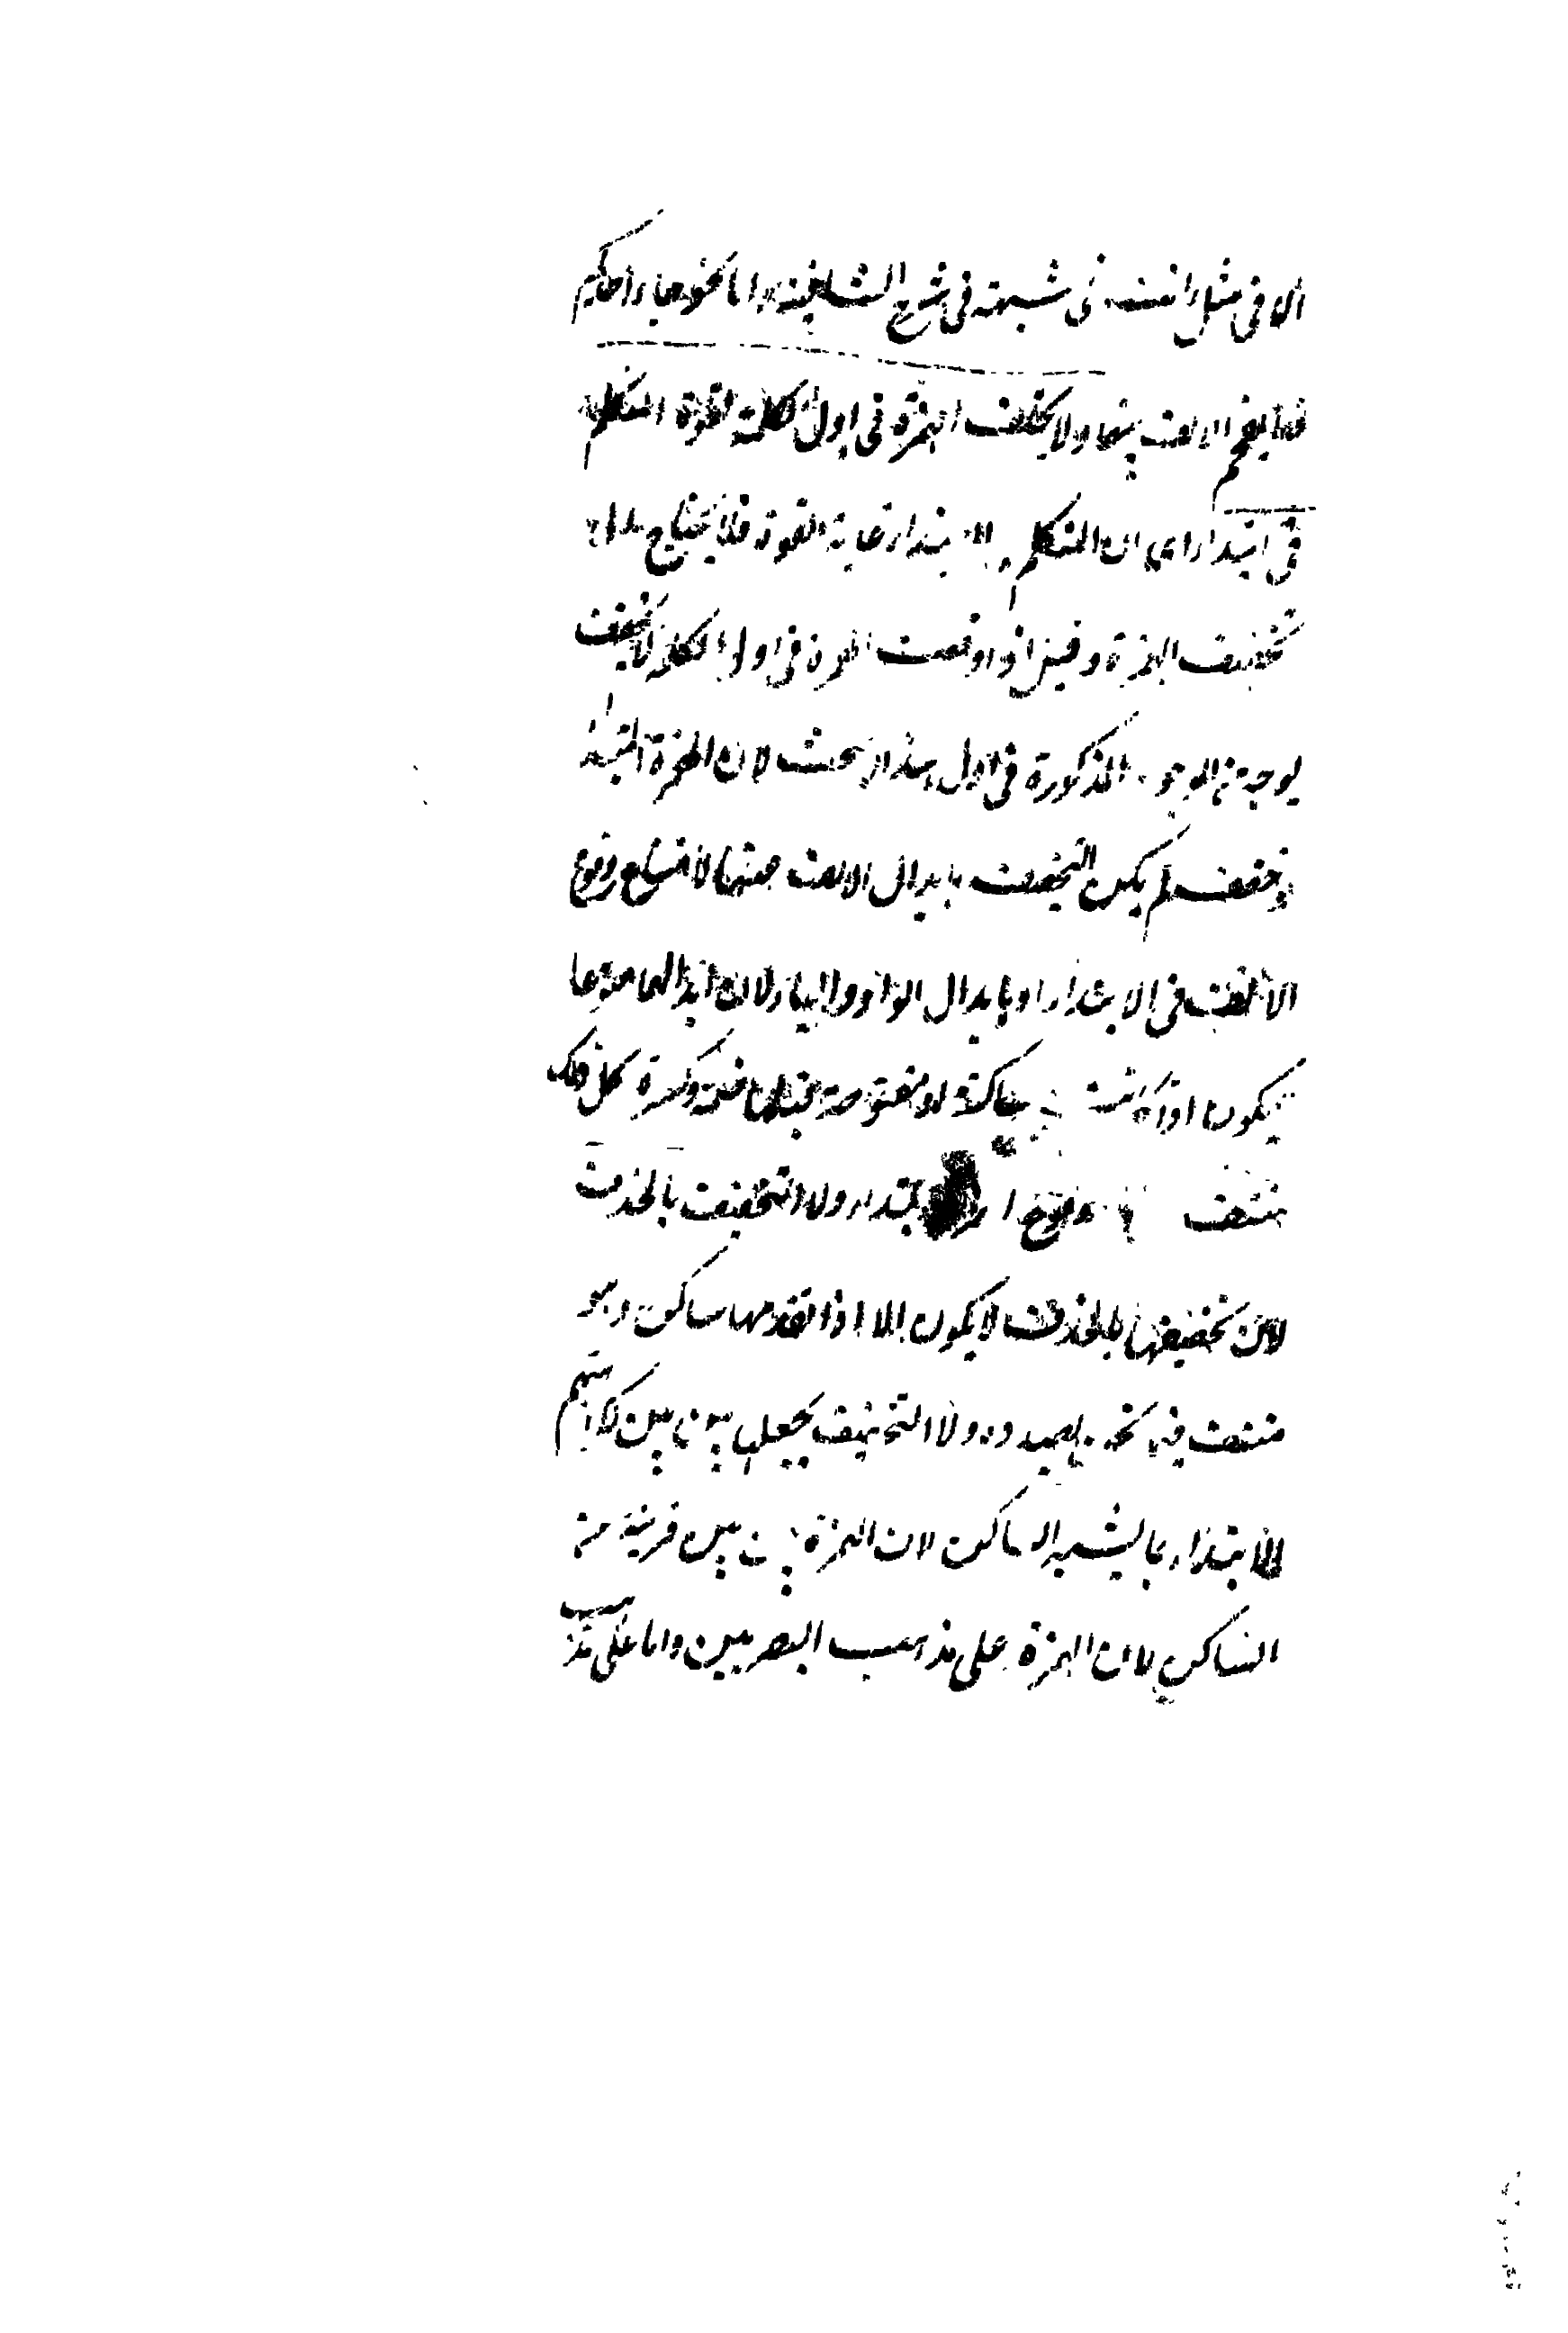 الا في مثل انت في شبهته في شرح الشافية واما نحو جاء احدكم
فلا يقحم الالف بينهما ولا يخفف الهمزة في اول الكلمة لقوة المتكلم
في ابتداء اي ان المتكلم الابتداء غاية القوة فلا يحتاج الى
تخفيف الهمزة وقيل اذا وقعت الهمزة في اول الكلمة لا يخفف
بوجه من الوجوه المذكورة في اول هذا البحث لان الهمزة المبتدأ
لو خفف لم يكن التخفيف بابدال الالف منها لامتناع وقوع
الالف في الابتداء او بابدال الواو والياء لان ابدالهما منها
يكون اذا كانت ساكنة او مفتوحة قبلها ضمة وكسرة كل ذلك
منتف وقوع الابتداء ولا التخفيف بالحذف
لان تخفيفها بالحذف لا يكون الا اذا تقدمها ساكن وهو
منتف في نحن بصدده ولا التخفيف بجعلها بين بين لكراهتهم
الابتداء بما يشبه الساكن لان الهمزة بين بين قريبة من
الساكن لان الهمزة على مذهب البصريين واما على مذهب